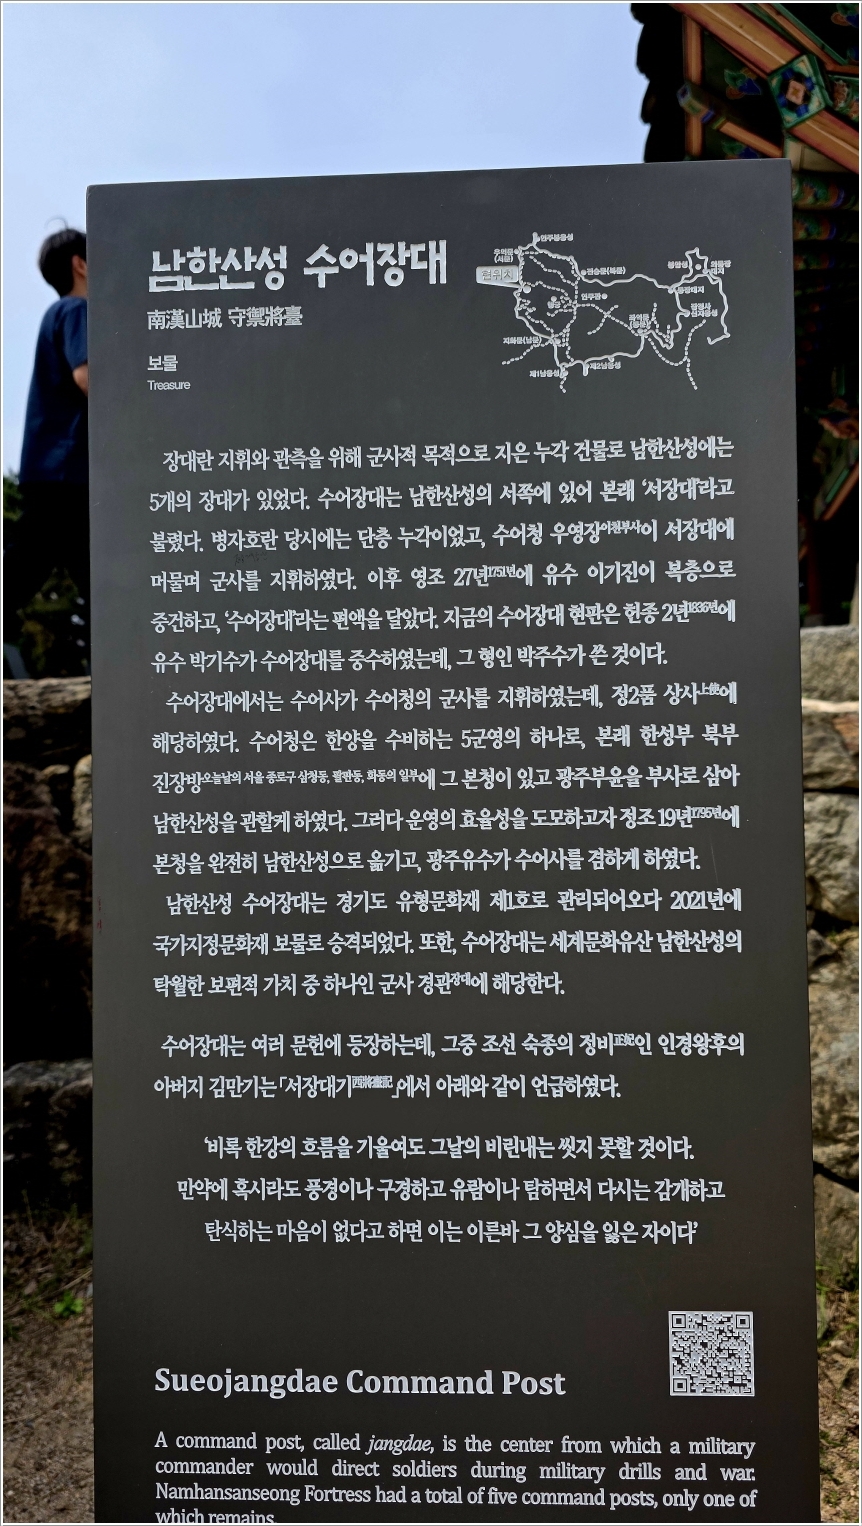 남한산성 수어장대
南漢山城 守禦將臺
보물
Treasure
연주봉옹성
우익문
(서문)
현위치
전승문(북문)
봉암성
외동장
대지
동장대지
연주관
행궁
좌익문
(동문)
장경사
신지옹성
지화문(남문)
제1남옹성
제2남옹성
장대란 지휘와 관측을 위해 군사적 목적으로 지은 누각 건물로 남한산성에는
5개의 장대가 있었다. 수어장대는 남한산성의 서쪽에 있어 본래 ‘서장대’라고
불렸다. 병자호란 당시에는 단층 누각이었고, 수어청 우영장이천부사이 서장대에
머물며 군사를 지휘하였다. 이후 영조 27년1751년에 유수 이기진이 복층으로
중건하고, ‘수어장대’라는 편액을 달았다. 지금의 수어장대 현판은 헌종 2년1836년에
유수 박기수가 수어장대를 중수하였는데, 그 형인 박주수가 쓴 것이다.
수어장대에서는 수어사가 수어청의 군사를 지휘하였는데, 정2품 상사上使에
해당하였다. 수어청은 한양을 수비하는 5군영의 하나로, 본래 한성부 북부
진장방오늘날의 서울 종로구 삼청동, 팔판동, 화동의 일부에 그 본청이 있고 광주부윤을 부사로 삼아
남한산성을 관할케 하였다. 그러다 운영의 효율성을 도모하고자 정조 19년1795년에
본청을 완전히 남한산성으로 옮기고, 광주유수가 수어사를 겸하게 하였다.
남한산성 수어장대는 경기도 유형문화재 제1호로 관리되어오다 2021년에
국가지정문화재 보물로 승격되었다. 또한, 수어장대는 세계문화유산 남한산성의
탁월한 보편적 가치 중 하나인 군사 경관장대에 해당한다.
수어장대는 여러 문헌에 등장하는데, 그중 조선 숙종의 정비正妃인 인경왕후의
아버지 김만기는 「서장대기西將臺記」에서 아래와 같이 언급하였다.
‘비록 한강의 흐름을 기울여도 그날의 비린내는 씻지 못할 것이다.
만약에 혹시라도 풍경이나 구경하고 유람이나 탐하면서 다시는 감개하고
탄식하는 마음이 없다고 하면 이는 이른바 그 양심을 잃은 자이다’
Sueojangdae Command Post
A command post, called jangdae, is the center from which a military
commander would direct soldiers during military drills and war.
Namhansanseong Fortress had a total of five command posts, only one of
which remains.